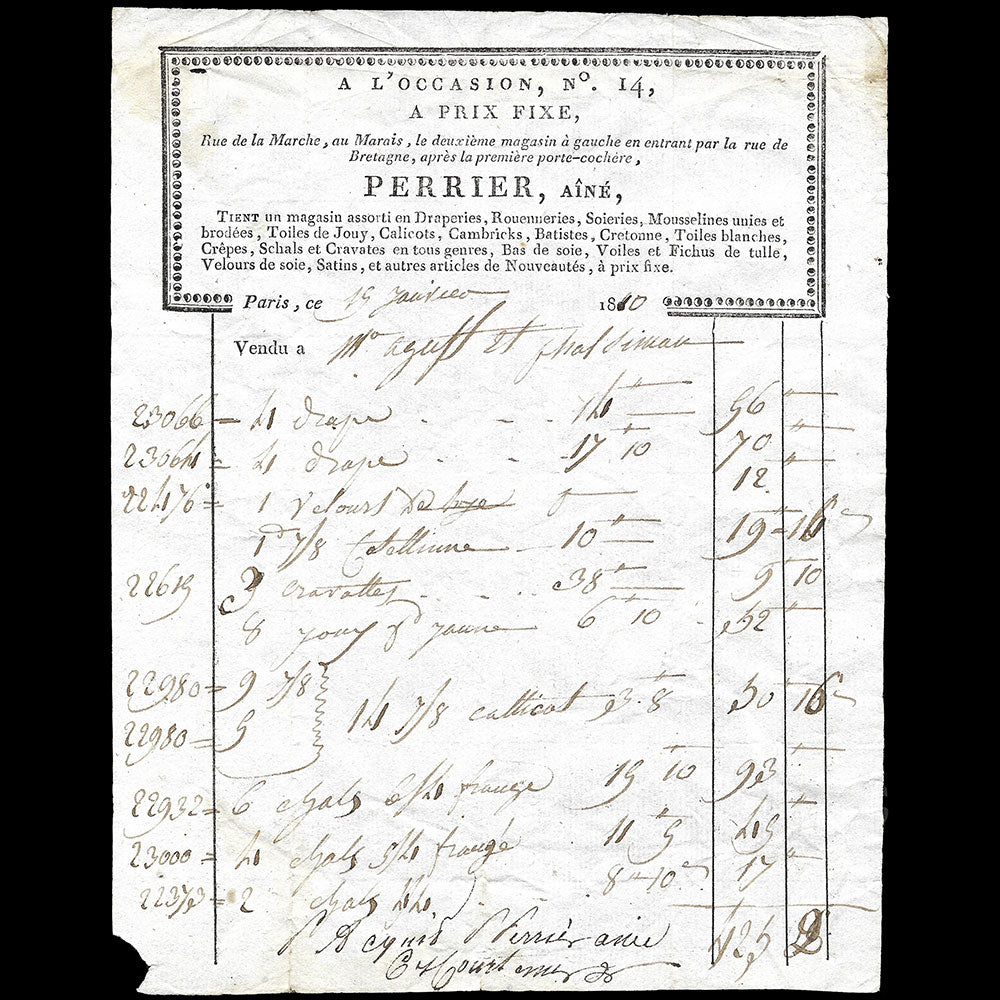 A L'OCCASION, Nº. 14,
A PRIX FIXE,
Rue de la Marche, au Marais, le deuxième magasin à gauche en entrant par la rue de
Bretagne, après la première porte-cochère,
PERRIER, AÎNÉ,
TIENT un magasin assorti en Draperies, Rouenneries, Soieries, Mousselines unies et
brodées, Toiles de Jouy, Calicots, Cambricks, Batistes, Cretonne, Toiles blanches,
Crêpes, Schals et Cravates en tous genres, Bas de soie, Voiles et Fichus de tulle,
Velours de soie, Satins, et autres articles de Nouveautés, à prix fixe.
Paris, ce 15 janvier 1810
Vendu a
23066 = 4 drape 14 " 56 "
23064 = 4 drape 17 " 10 70 "
22476 = 1 velours de soye 12 "
1 7/8 10 " 19 " 16
22615 3 cravattes 38 " 9 10
8 jouy jaune 6 " 10 52 "
22980 = 9 7/8
14 7/8 callicot 3 8 50 16
22980 = 5
22932 = 6 chals 6/4 frange 15 " 10 93 "
23000 = 4 chals 5/4 frange 11 " 5 45 "
22373 = 2 chals 4/4 8 " 10 17 "
Perrier ainé 425 2